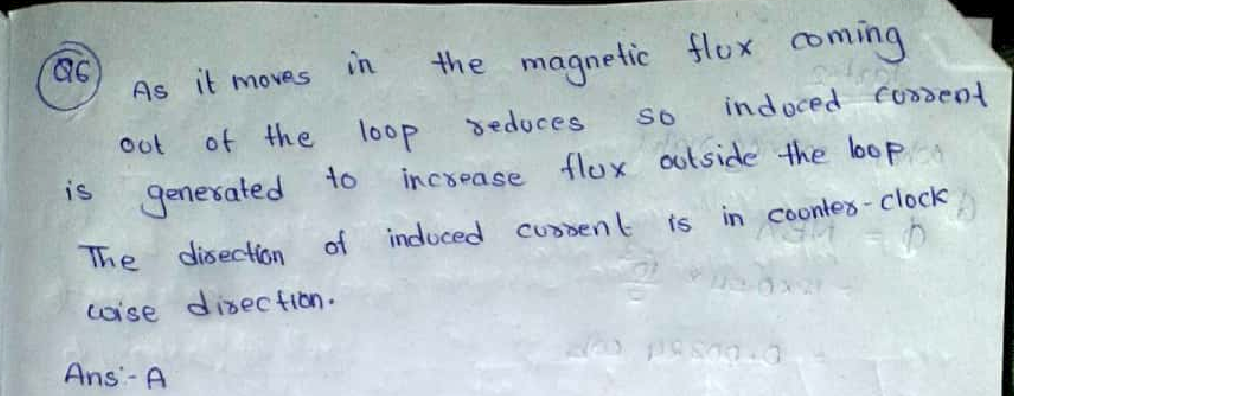 Q6 As it moves in the magnetic flux coming
out of the loop reduces so induced current
is generated to increase flux outside the loop.
The direction of induced current is in counter-clock
wise direction.
Ans:- A